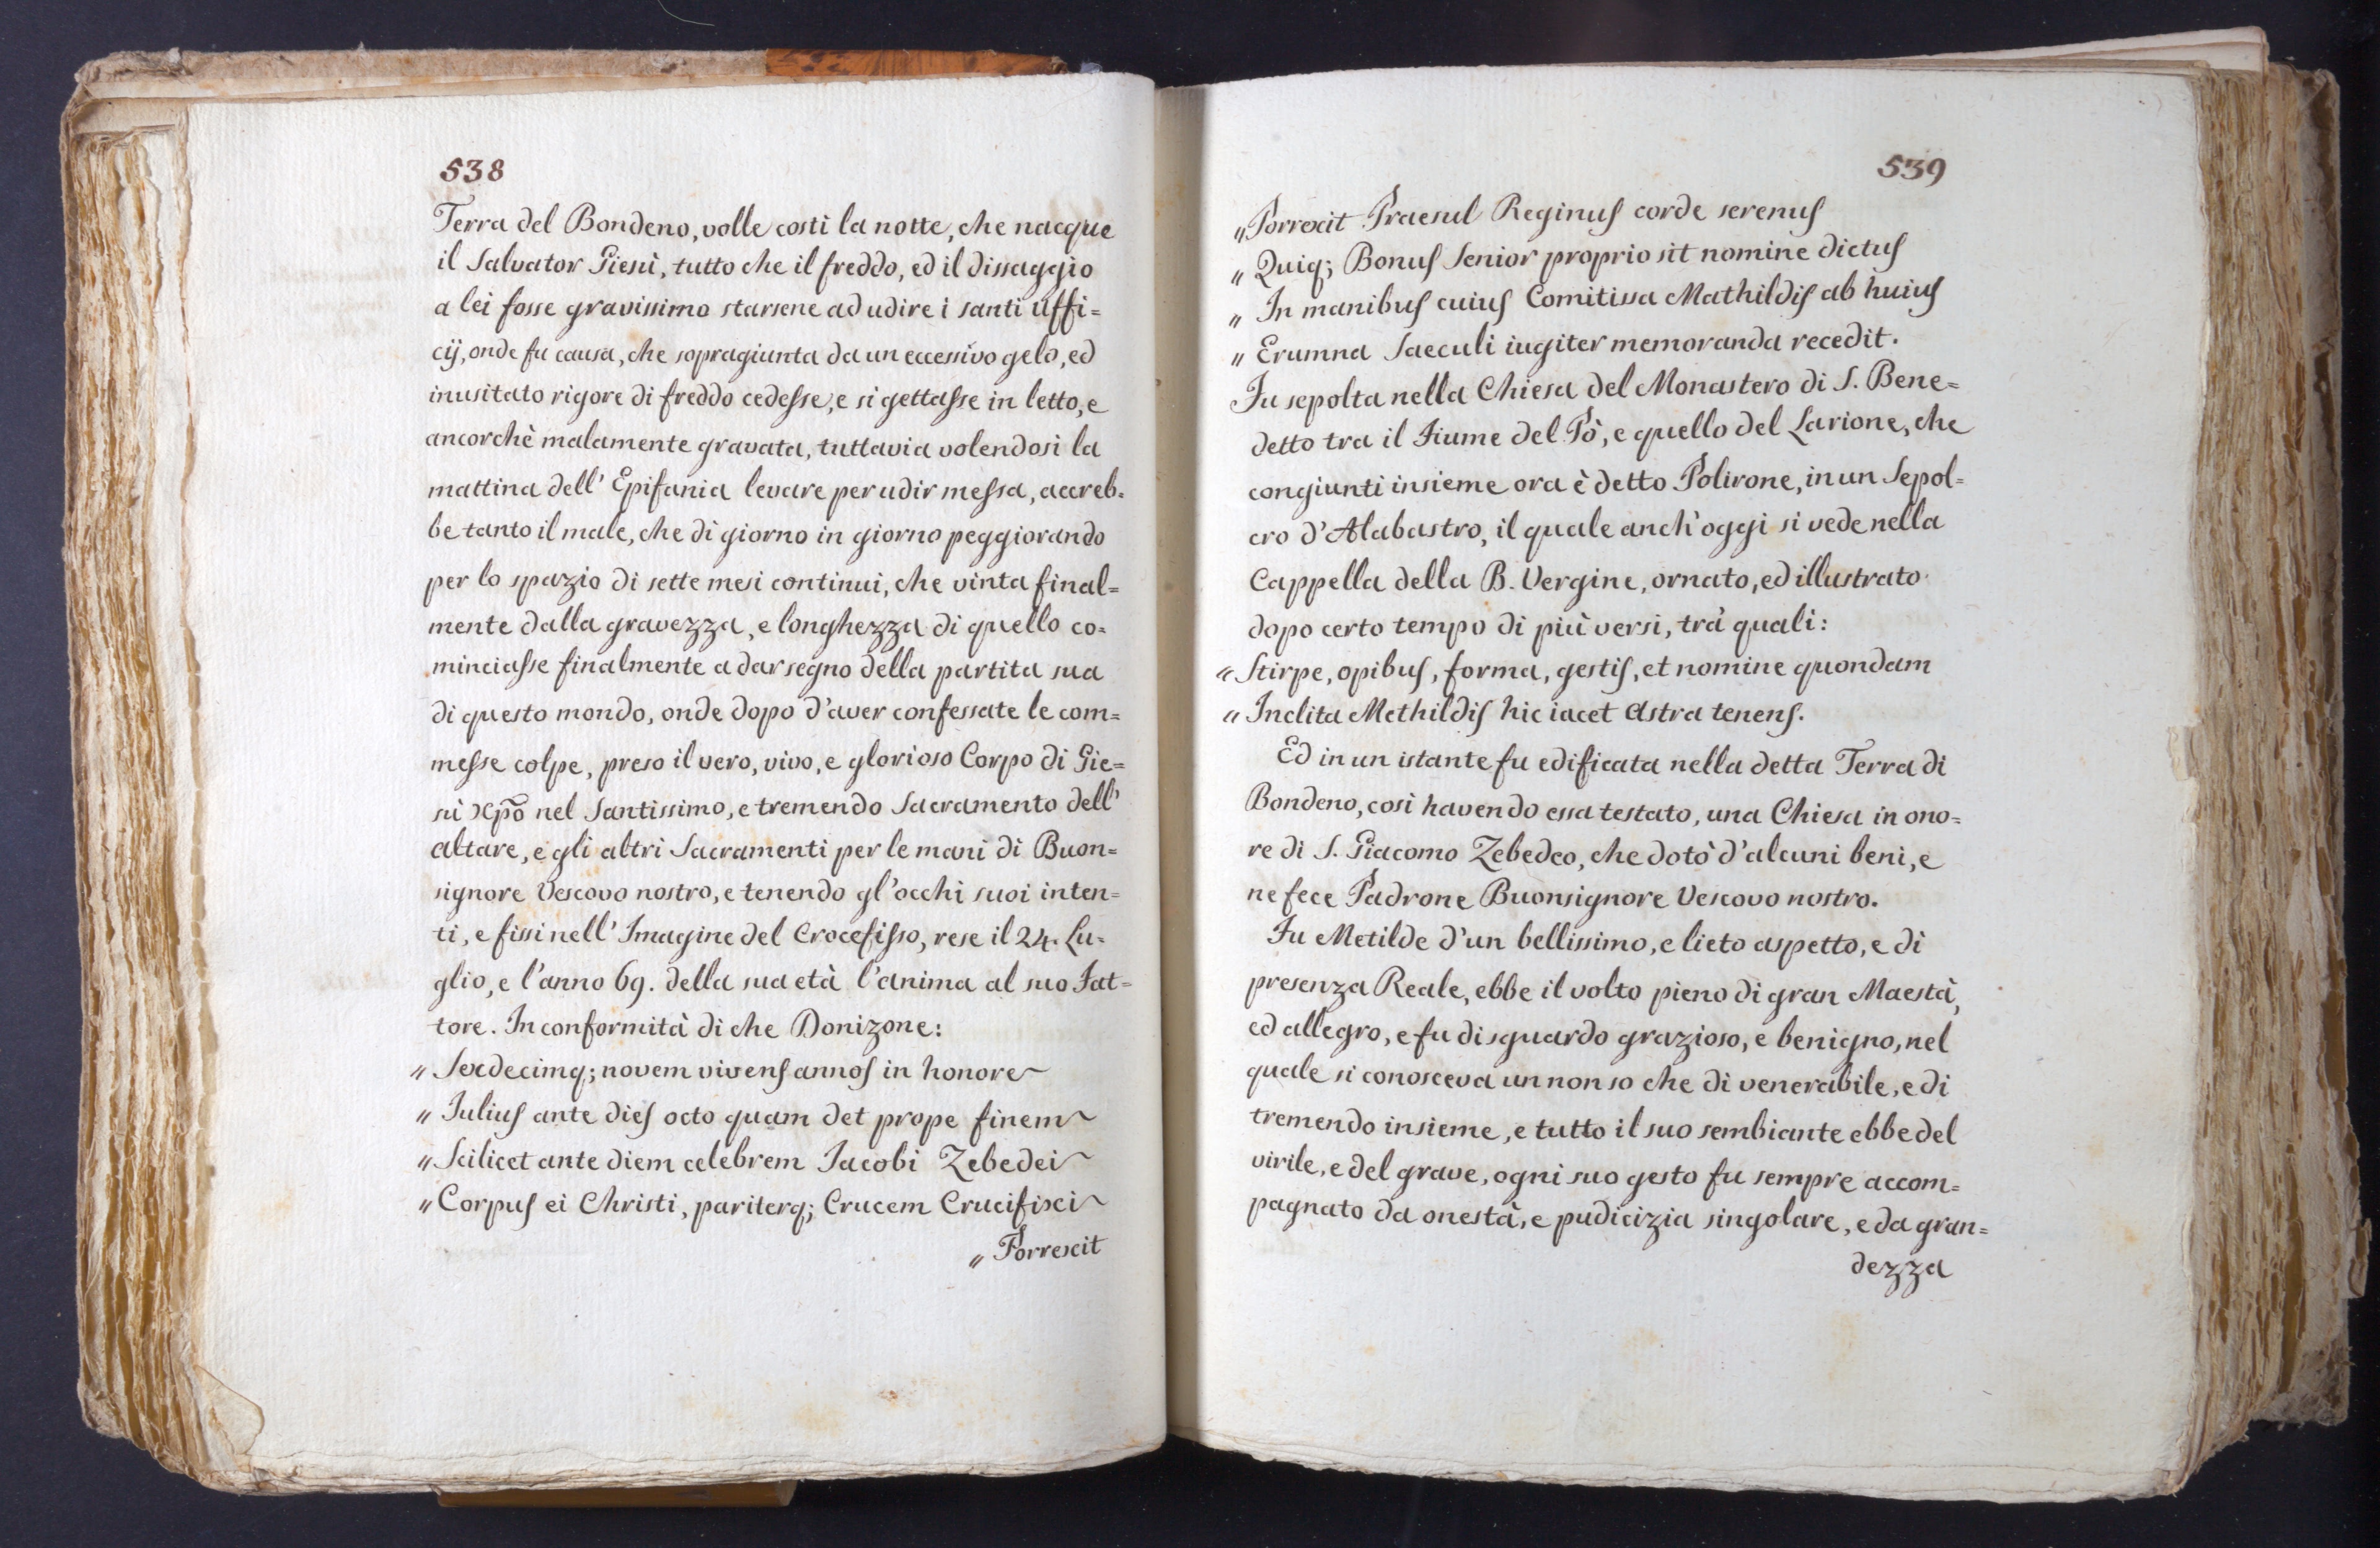 538
Terra del Bondeno, volle costì la notte, che nacque
il Salvator Giesù, tutto che il freddo, ed il dissaggio
a lei fosse gravissimo starsene ad udire i santi uffi=
cij, onde fu causa, che sopragiunta da un eccessivo gelo, ed
inusitato rigore di freddo cedesse, e si gettasse in letto, e
ancorchè malamente gravata, tuttavia volendosi la
mattina dell' Epifania levare per udir messa, accreb=
be tanto il male, che di giorno in giorno peggiorando
per lo spazio di sette mesi continui, che vinta final=
mente dalla gravezza, e longhezza di quello co=
minciasse finalmente a dar segno della partita sua
di questo mondo, onde dopo d'aver confessate le com=
messe colpe, preso il vero, vivo, e glorioso Corpo di Gie=
sù Xpõ nel Santissimo, e tremendo Sacramento dell'
altare, e gli altri Sacramenti per le mani di Buon=
signore Vescovo nostro, e tenendo gl'occhi suoi inten=
ti, e fissi nell' Imagine del Crocefisso, rese il 24. Lu=
glio, e l'anno 69. della sua età l'anima al suo Fat=
tore. In conformità di che Donizone:
" Sexdecimq; novem vivens annos in honore
" Iulius ante dies octo quam det prope finem
" Scilicet ante diem celebrem Iacobi Zebedei
" Corpus ei Christi, pariterq; Crucem Crucifixi
" Porrexit
539
" Porrexit Praesul Reginus corde serenus
" Quiq; Bonus Senior proprio sit nomine dictus
" In manibus cuius Comitissa Mathildis ab huius
" Erumna Saeculi iugiter memoranda recedit.
Fu sepolta nella Chiesa del Monastero di S. Bene=
detto tra il Fiume del Pò, e quello del Larione, che
congiunti insieme ora è detto Polirone, in un Sepol=
cro d'Alabastro, il quale anch'oggi si vede nella
Cappella della B. Vergine, ornato, ed illustrato
dopo certo tempo di più versi, trà quali:
" Stirpe, opibus, forma, gestis, et nomine quondam
" Inclita Methildis hic iacet Astra tenens.
Ed in un istante fu edificata nella detta Terra di
Bondeno, così havendo essa testato, una Chiesa in ono=
re di S. Giacomo Zebedeo, che dotò d'alcuni beni, e
ne fece Padrone Buonsignore Vescovo nostro.
Fu Metilde d'un bellissimo, e lieto aspetto, e di
presenza Reale, ebbe il volto pieno di gran Maestà,
ed allegro, e fu di sguardo grazioso, e benigno, nel
quale si conosceva un non so che di venerabile, e di
tremendo insieme, e tutto il suo sembiante ebbe del
virile, e del grave, ogni suo gesto fu sempre accom=
pagnato da onestà, e pudicizia singolare, e da gran=
dezza